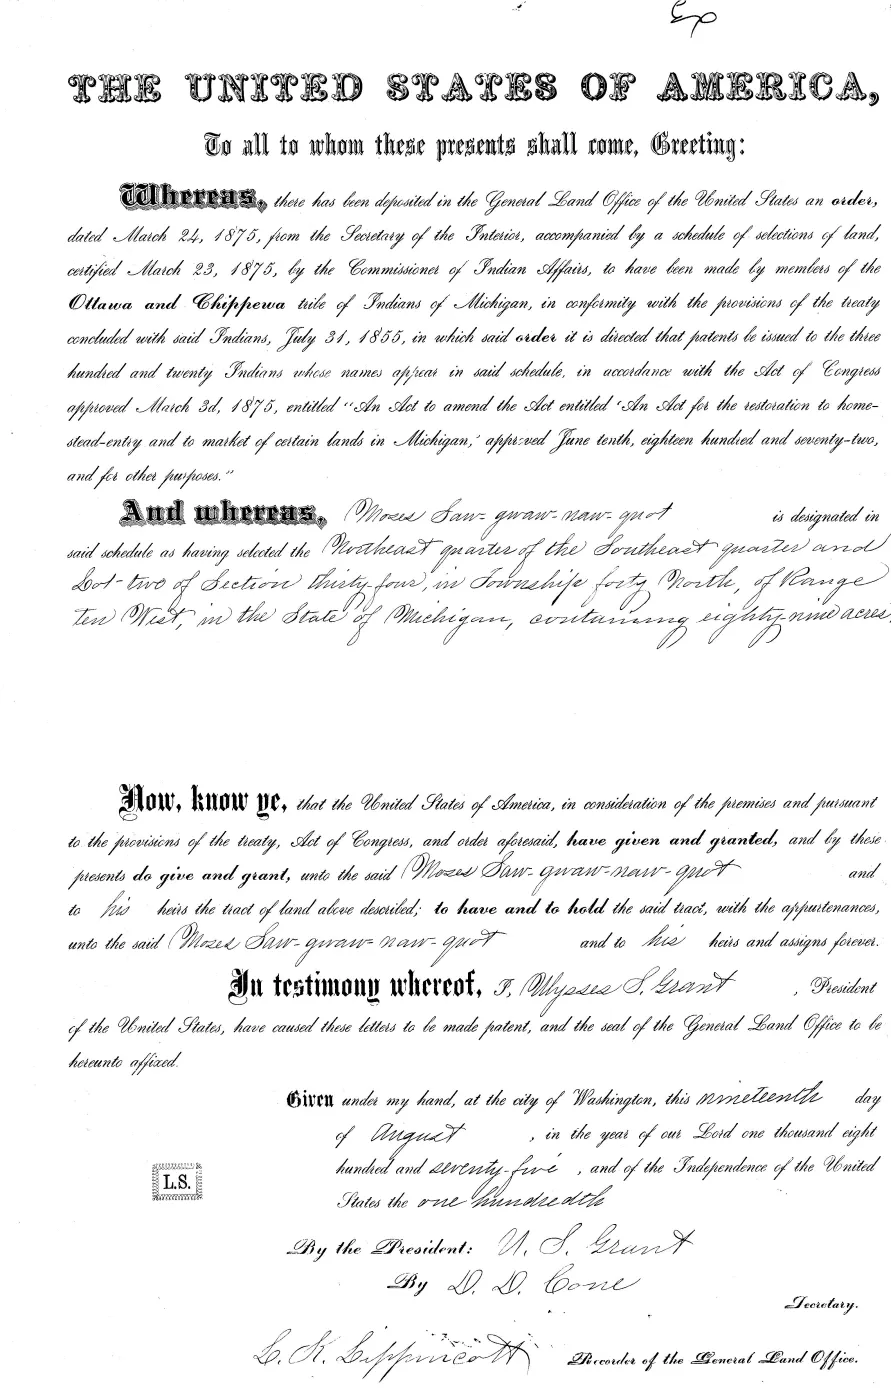 THE UNITED STATES OF AMERICA,
To all to whom these presents shall come, Greeting:
Whereas, there has been deposited in the General Land Office of the United States an order,
dated March 24, 1875, from the Secretary of the Interior, accompanied by a schedule of selections of land,
certified March 23, 1875, by the Commissioner of Indian Affairs, to have been made by members of the
Ottawa and Chippewa tribe of Indians of Michigan, in conformity with the provisions of the treaty
concluded with said Indians, July 31, 1855, in which said order it is directed that patents be issued to the three
hundred and twenty Indians whose names appear in said schedule, in accordance with the Act of Congress
approved March 3d, 1875, entitled "An Act to amend the Act entitled 'An Act for the restoration to home-
stead-entry and to market of certain lands in Michigan,' approved June tenth, eighteen hundred and seventy-two,
and for other purposes."
And whereas, Moses Saw-gwaw-naw-quot is designated in
said schedule as having selected the Northeast quarter of the Southeast quarter and
Lot two of Section thirty-four, in Township forty North, of Range
ten West, in the State of Michigan, containing eighty-nine acres,
Now, know ye, that the United States of America, in consideration of the premises and pursuant
to the provisions of the treaty, Act of Congress, and order aforesaid, have given and granted, and by these
presents do give and grant, unto the said Moses Saw-gwaw-naw-quot and
to his heirs the tract of land above described; to have and to hold the said tract, with the appurtenances,
unto the said Moses Saw-gwaw-naw-quot and to his heirs and assigns forever.
In testimony whereof, I, Ulysses S. Grant, President
of the United States, have caused these letters to be made patent, and the seal of the General Land Office to be
hereunto affixed.
Given under my hand, at the city of Washington, this nineteenth day
of August, in the year of our Lord one thousand eight
hundred and seventy-five, and of the Independence of the United
L.S.
States the one hundredth
By the President: U. S. Grant
By D. D. Cone
Secretary.
L. K. Lippincott Recorder of the General Land Office.